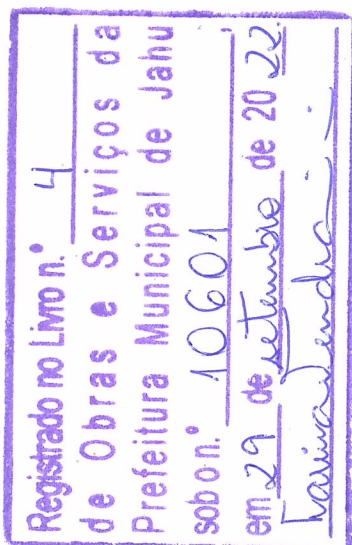 Registrado no Livro n.º 4
de Obras e Serviços da
Prefeitura Municipal de Jahu
sob o n.º 10601
em 29 de setembro de 2022.